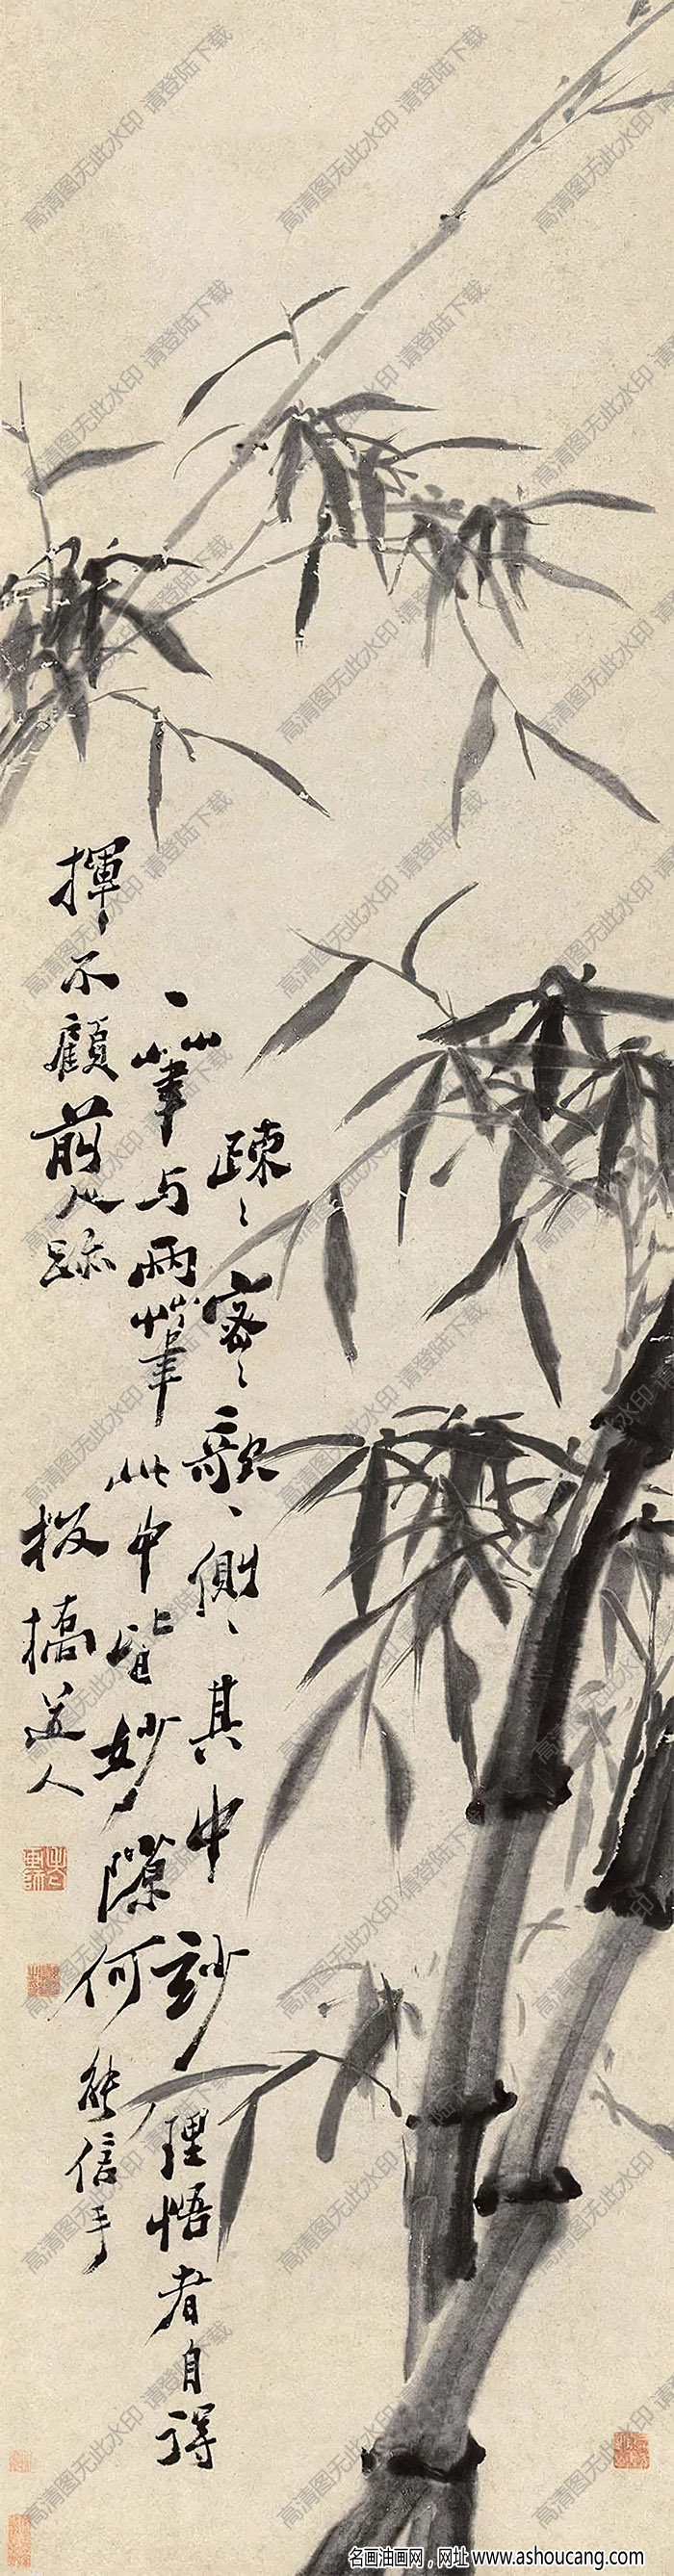 疎々密々欹々側々其中妙理悟者自得
一筆与兩筆此中皆妙隙何能信手
揮不顧前人跡
板橋道人
高清图无此水印 请登陆下载
名画油画网，网址 www.ashoucang.com